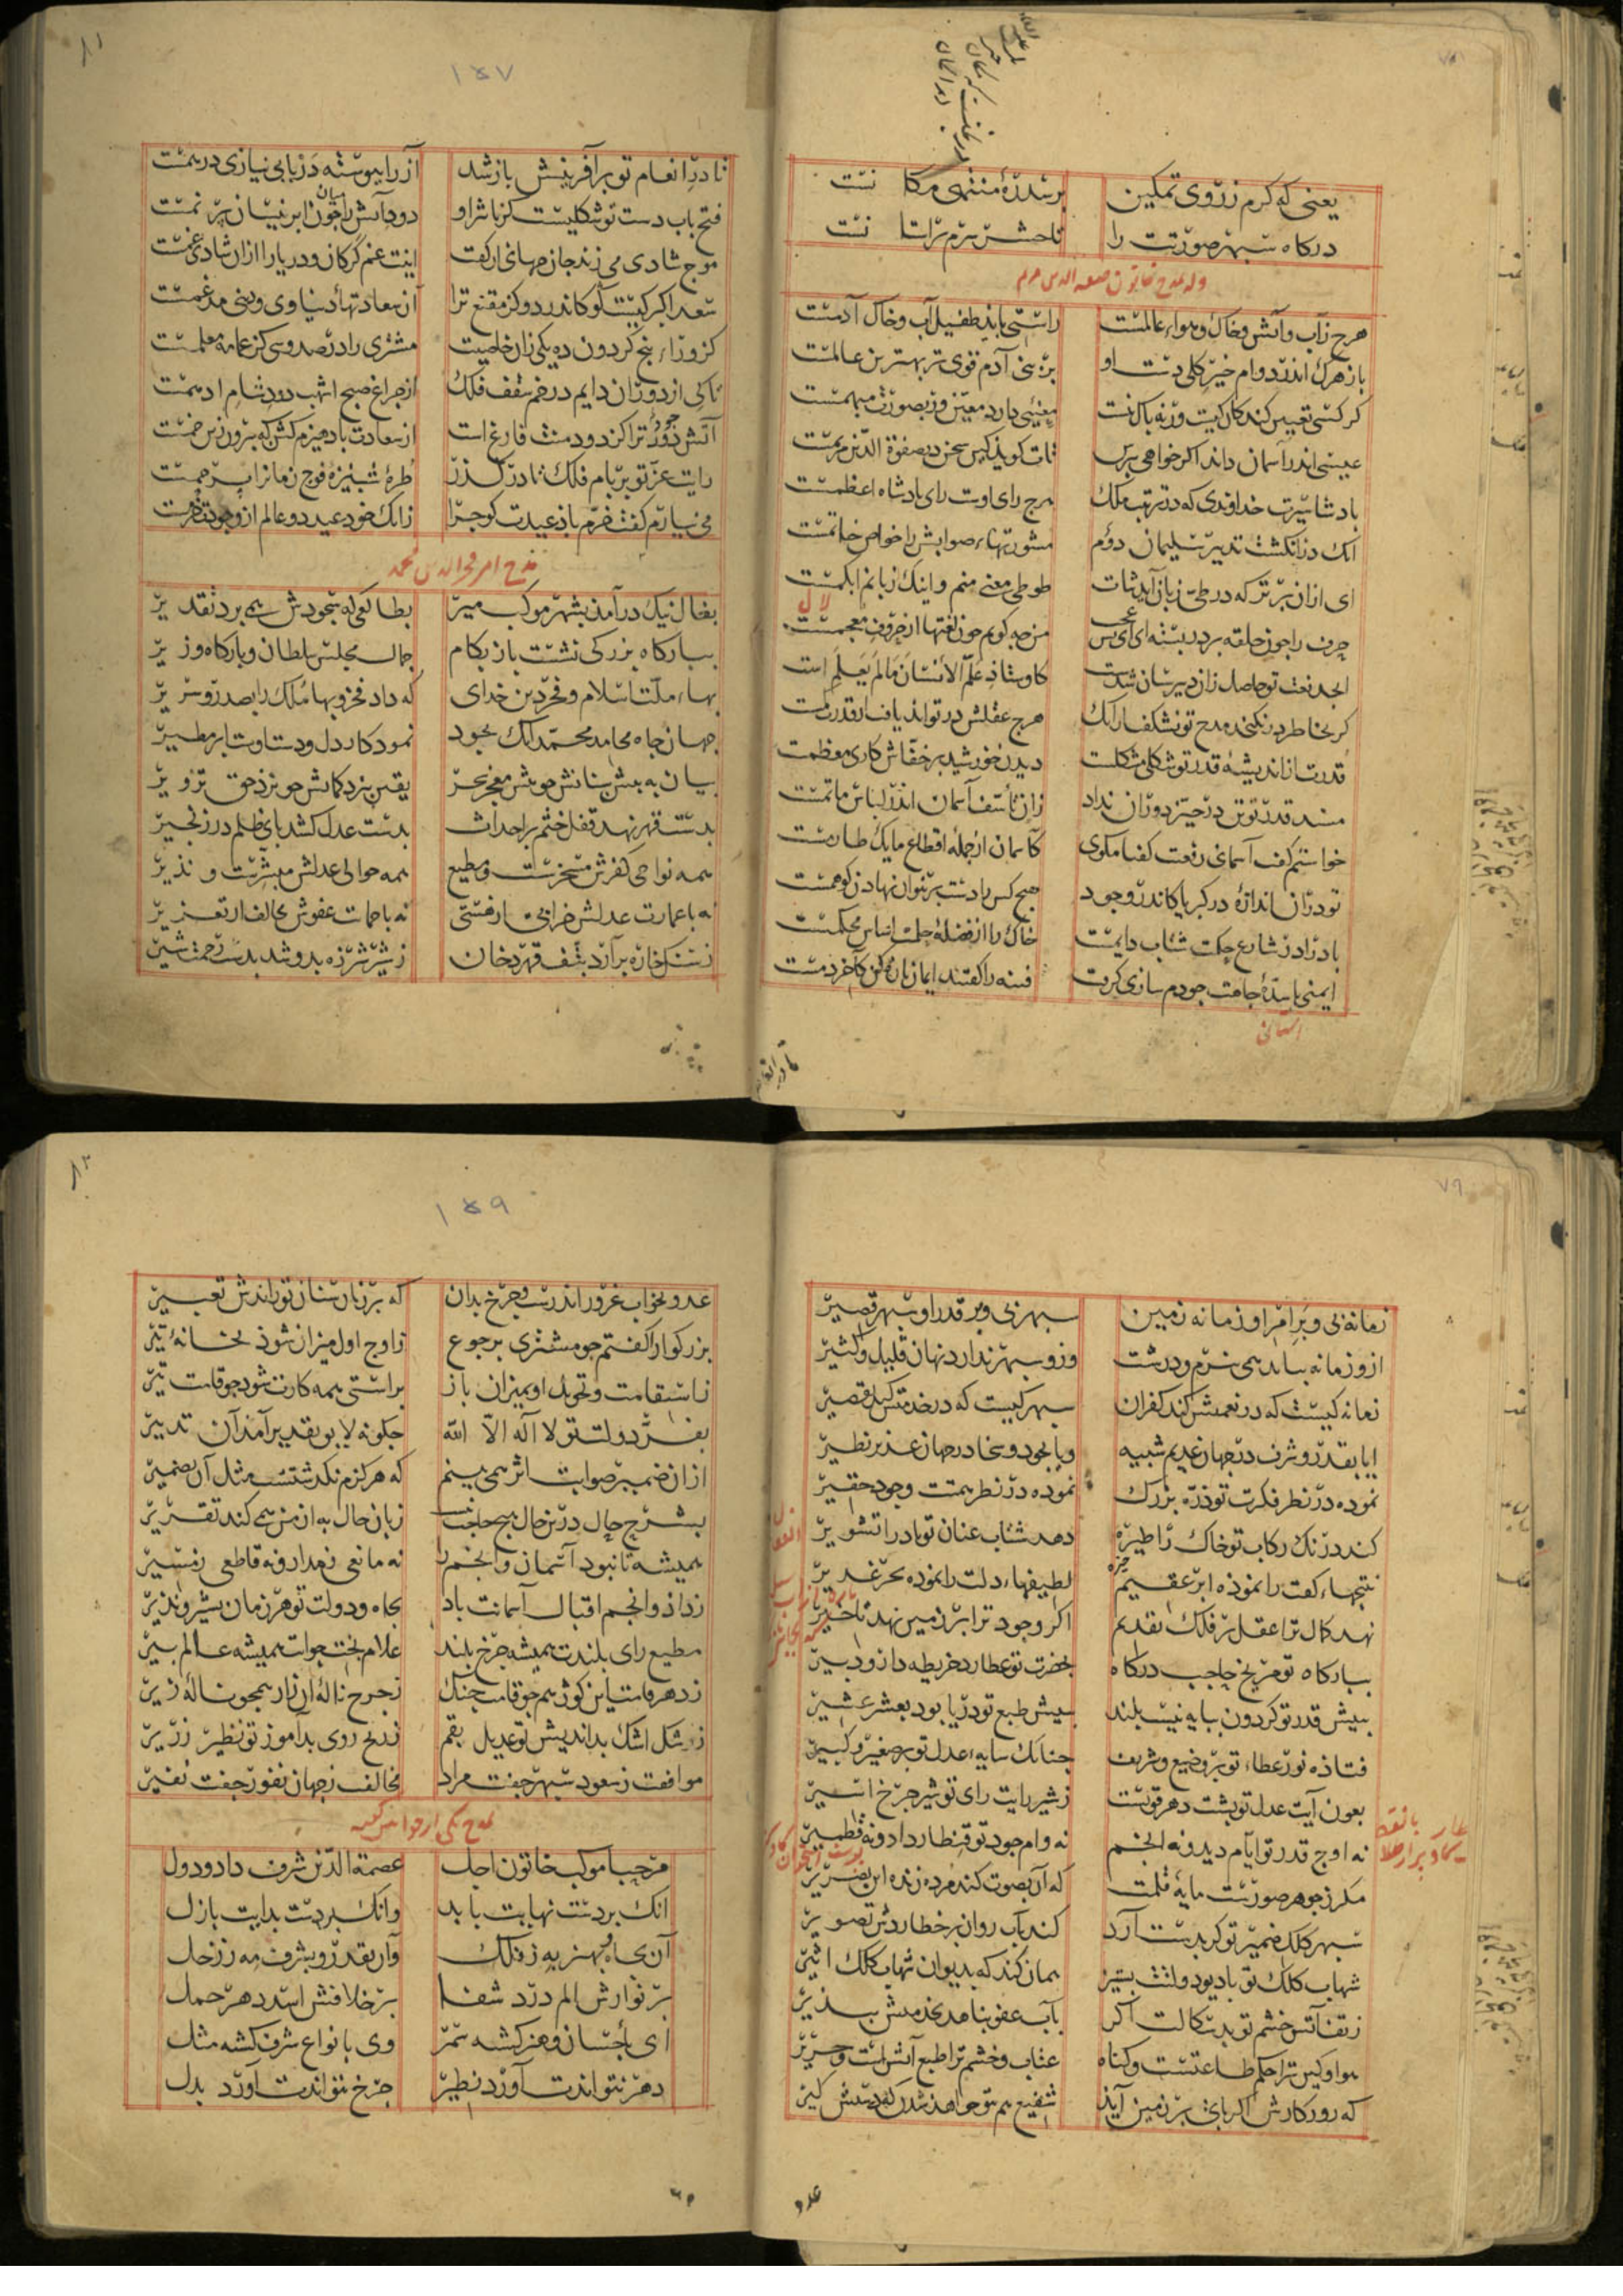 ۷۸
یعنی که کرم ز روی تمکین
بر سدرهٔ منتهی مکا نتست
درکاه سبهر صورتت را
تا حشر سرم بر آستا نتست
وله یمدح خاتون صفوة الدین مریم
هرج زآب و آتش و خاک و هواء عالمست
راستی باید طفیل آب و خاک آدمست
باز هرک اندر دوام خیر کلی دست او
بر بنی آدم قوی تر بهترین عالمست
کر کسی تعیین کند کان کیست ورنه باک نیست
معنیی دارد معین ور بصورت مبهمست
عیسی اندر آسمان داند اکر خواهی ببرس
تات کوید کین سخن در صفوة الدین مریمست
بادشا سیرت خداوندی که در ترتیب ملک
هرج رای اوست رای بادشاه اعظمست
آنک در انکشت تدبیر سلیمان دوم
مشورتهاء صوابش را خواص خاتمست
ای از آن برتر که در طی زبان آید ثنات
طوطی معنی منم و اینک زبانم ابکمست
لال
حرف را جون حلقه بر در بسته ای ای بس عجب
من جه کویم جون لغتها از حروف معجمست
ابجد نعت تو حاصل زان دبیرستان شدست
کاوستاذ علم الانسان مالم یعلم است
کر بخاطر در نکنجد مدح تو نشکفت از آنک
هرج عقلش در تواند یافت از قدرت کمست
قدرت از اندیشهٔ قدر تو شکلی مشکلست
دیدن خورشید بر خفاش کاری معظمست
مسند قدر تو بین در حیز دوران نداد
زان تأسف آسمان اندر لباس ماتمست
خواستم کفت آسمانی رفعت کفتا مکوی
کاسمان از جملهٔ اقطاع ما یک طارمست
تو در آن اندازهٔ در کبریا کاندر وجود
هیج کس را دست بر نتوان نهادن کوهمست
باد را در شارع حکمت شتاب دایمست
خاک را از فضلهٔ حلمت اساس محکمست
ایمنی با سدهٔ جاهت جو دم سازی کرفت
فتنه را کفتند ایمان تازه کن کآخر دمست
تا در انعام
۱۵۷
۸۱
تا در انعام تو بر آفرینش باز شد
آز را بیوسته در بابی نیازی در همست
فتح باب دست تو شکلیست کز تاثیر او
دود آتش را جون ابر نیسان بر نمست
موج شادی می زند جان جهانی از کفت
اینت غم کر کان و دریا را از آن شادی غمست
سعد اکبر کیست کو کاندر دو کز مقنع ترا
آن سعادتهاء دنیاوی و دینی مدغمست
کز وراء بنج کردون ده یکی زان خاصیت
مشتری را در صد و سی کز عمامه معلمست
تا کی از دوران دایم در خم سقف فلک
از جراغ صبح اشهب دود شام ادهمست
آتش دور ترا کز دود منت فارغ است
از سعادت باد هیزم کش که بیرون زین خمست
رایت عز تو بر بام فلک تا در کذر
طرهٔ شب نیزهٔ فوج زمانرا برجمست
می نیارم کفت خرم باذ عیدت کوجرا
زانک خود عید دو عالم از وجودت خرمست
مدح امیر فخر الدین محمد
بفال نیک در آمد بشهر موکب میر
بطالعی که سجودش همی برد تقدیر
ببارکاه بزرکی نشست باز بکام
جمال مجلس سلطان و بارکاه وزیر
بهاء ملت اسلام و فخر دین خدای
که داد فخر و بها ملک را بصدر و سریر
جهان جاه محامد محمد آنک بجود
نمود کار دل و دست او بابر مطیر
بیان به بیش بنانش جو بیش معجز سحر
یقین بنزد کمانش جو نزد حق تزویر
بدست قهر نهد قفل ختم بر احداث
بدست عدل کشد بای ظلم در زنجیر
همه نواحی کفرش مسخرست و مطیع
همه حوالی عدلش مبشرست و نذیر
نه با عمارت عدلش خرابی از مستی
نه با حمایت عفوش مخالف از تعزیر
ز سنک خاره برآرد بتف قهر دخان
ز شیر شرزه بدوشد بدست رحمت شیر
۷۹
زمانه نی و بر امر او زمانه زمین
سبهر نی و بر قدر او سبهر قصیر
ازو زمانه بیابد همی نرم و درشت
وزو سبهر ندارد نهان قلیل و کثیر
زمانه کیست که در نعمتش کند کفران
سبهر کیست که در خدمتش کند تقصیر
ایا بقدر و شرف در جهان عدیم شبیه
ویا بجود و سخا در جهان عدیم نظیر
نموده در نظر فکرت تو ذره بزرک
نموده در نظر همتت وجود حقیر
کند درنک رکاب تو خاک را طیره
دهد شتاب عنان تو باد را تشویر
نتیجهاء کفت را نموده ابر عقیم
لطیفهاء دلت را نموده بحر غدیر
نهد کمال ترا عقل بر فلک تقدیم
اکر وجود ترا بر زمین نهد تاخیر
ببارکاه تو مریخ حاجب درکاه
بحضرت تو عطارد خریطه دار و دبیر
ببیش قدر تو کردون ببایه نیست بلند
ببیش طبع تو دریا بود بعشر عشیر
فتاذه نور عطاء تو بر وضیع و شریف
جنانک سایهٔ عدل تو بر صغیر و کبیر
بعون آیت عدل تو بشت دهر قویست
ز شیر رایت رای تو شیر جرخ اسیر
نه اوج قدر ترا ایام دید و نه انجم
نه وام جود تو قنطار داد و نه قطمیر
مکر ز جوهر صورست مایهٔ قلمت
که آن بصوت کند مرده زنده این بصریر
سبهر کلک ضمیر تو کر بدست آرد
کند بآب روان بر خطا ردش تصویر
شهاب کلک تو با دیو دولتت بستیز
همان کند که بدیوان شهاب کلک اثیر
ز تف آتش خشم تو بدسکالت اکر
بآب عفو بناهد بخدمتش ببذیر
هوا و کین ترا حکم طاعتست و کناه
عتاب و خشم ترا طبع آتش است و حریر
که روزکارش اکر بای بر زمین آید
شفیع هم تو خواهد شدن که دستش کیر
عدو
۱۵۹
۸۲
عدو بخواب غرور اندرست و جرخ بدان
که بر زبان سنان تو راندش تعبیر
بزرکوارا کفتم جو مشتری برجوع
ز اوج اول میزان شوذ بخانهٔ تیر
ز استقامت و تحویل او بمیزان باز
براستی همه کارت شود جو قامت تیر
بفر دولت تو لا اله الا الله
جکونه لایق تقدیر آمد آن تدبیر
از آن ضمیر صوابت اثر همی بینم
که هرکزم نکذشتست مثل آن بضمیر
بشرح حال درین حال هیج حاجت نیست
زبان حال به از من همی کند تقریر
همیشه تا نبود آسمان و انجم را
نه مانعی ز مدار و نه قاطعی ز مسیر
زداذ و انجم اقبال آسمانت باد
بجاه و دولت تو هر زمان بشیر و نذیر
مطیع رای بلندت همیشه جرخ بلند
غلام بخت جوانت همیشه عالم بیر
ز دهر قامت این کوژ هم جو قامت جنک
ز جرخ نالهٔ آن زار همجو نالهٔ زیر
ز شکل اشک بداندیش تو عدیل بقم
ز رنج روی بدآموز تو نظیر زریر
موافقت ز سعود سبهر جفت مراد
مخالفت ز جهان نفور جفت نفیر
یمدح یکی از خواتین
مرحبا موکب خاتون اجل
عصمة الدین شرف داد و دول
آنک بردست نهایت بابد
وانک بردست بدایت بازل
آن بجاه و بهنر به ز فلک
وآن بقدر و بشرف مه ز زحل
بر توارش الم درد شفا
بر خلافش اسد دهر حمل
ای باحسان و هنر کشته سمر
وی بانواع شرف کشته مثل
دهر نتواندت آورد نظیر
جرخ نتواندت آورد بدل